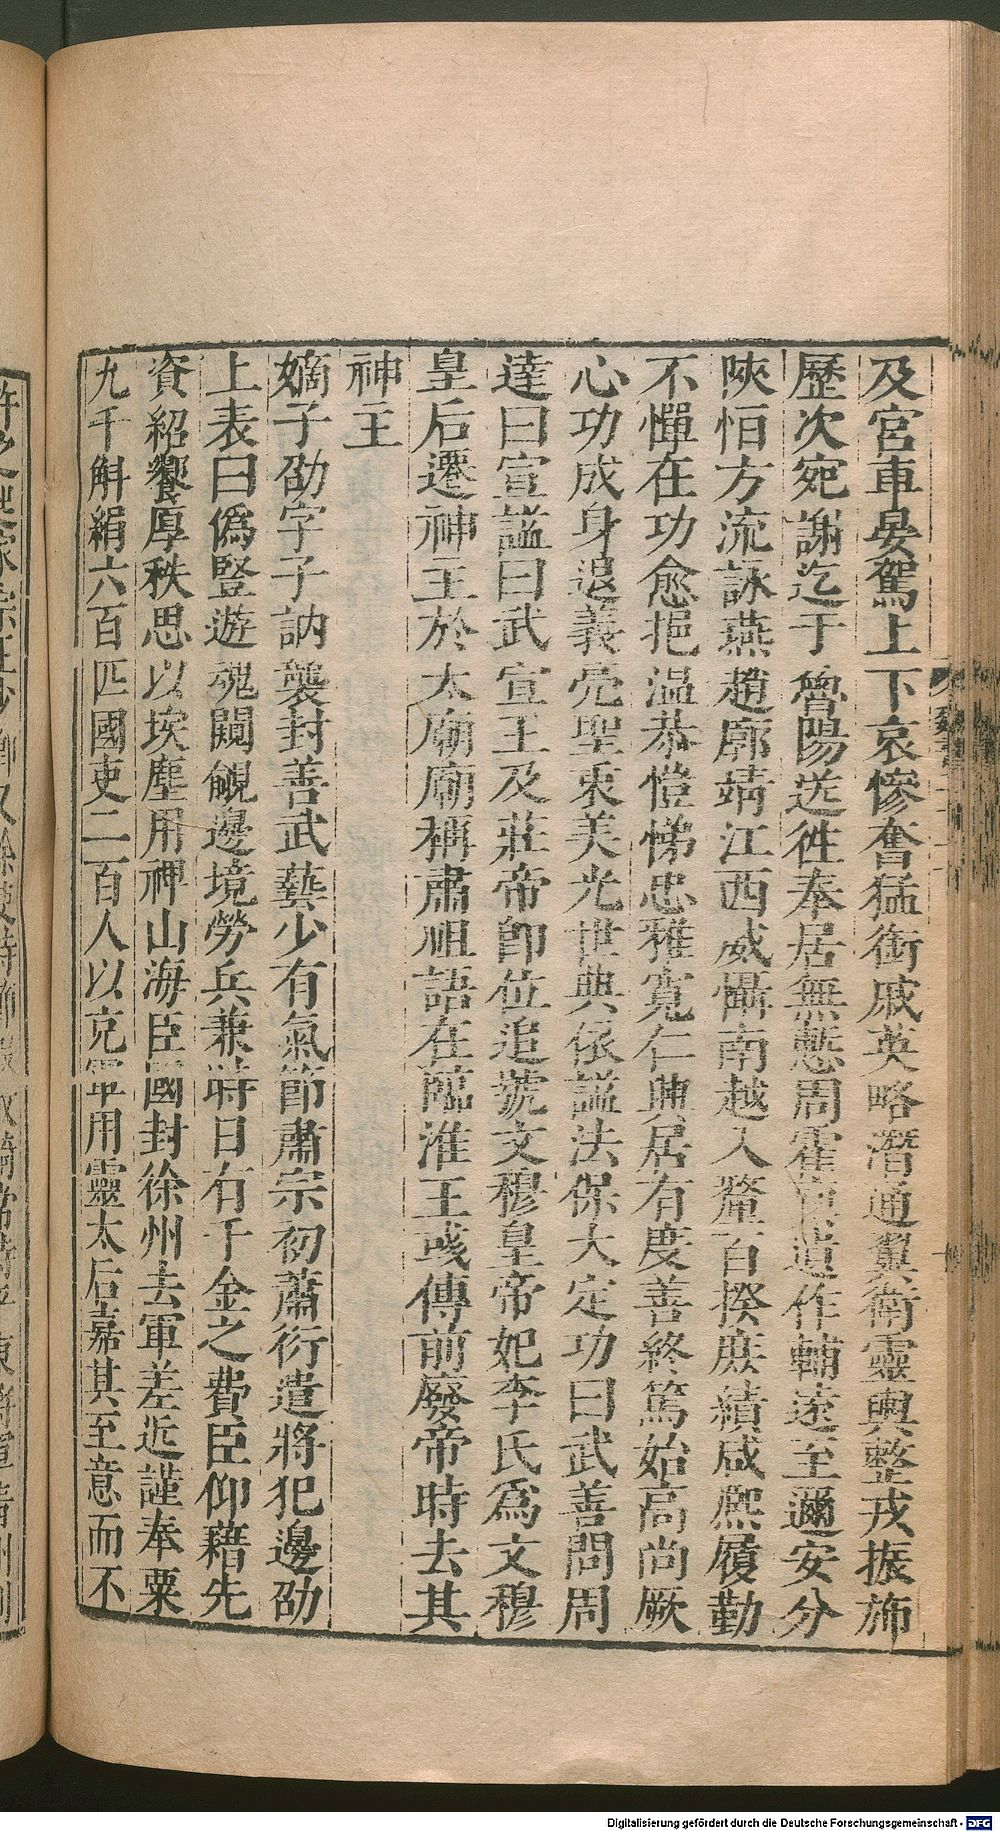 及宮車晏駕上下哀慘奮猛銜戚英略潛通翼衛靈輿整戎振斾
歷次宛謝迄于魯陽送往奉居無慙周霍遺作輔遠至邇安分
陝恒方流詠燕趙廓靖江西威懾南越入釐百揆庶績咸熙履勤
不憚在功愈挹温恭愷悌忠雅寬仁興居有度善終篤始高尚厥
心功成身退義亮聖衷美光世典依謚法保大定功曰武善問周
達曰宣謚曰武宣王及莊帝卽位追號文穆皇帝妃李氏爲文穆
皇后遷神主於太廟廟稱肅祖語在臨淮王彧傳前廢帝時去其
神主
嫡子劭字子訥襲封善武藝少有氣節肅宗初蕭衍遣將犯邊劭
上表曰僞豎遊魂闚覦邊境勞兵兼時日有千金之費臣仰藉先
資紹饗厚秩思以埃塵用裨山海臣國封徐州去軍差近謹奉粟
九千斛絹六百匹國吏二百人以充軍用靈太后嘉其至意而不
Digitalisierung gefördert durch die Deutsche Forschungsgemeinschaft - DFG